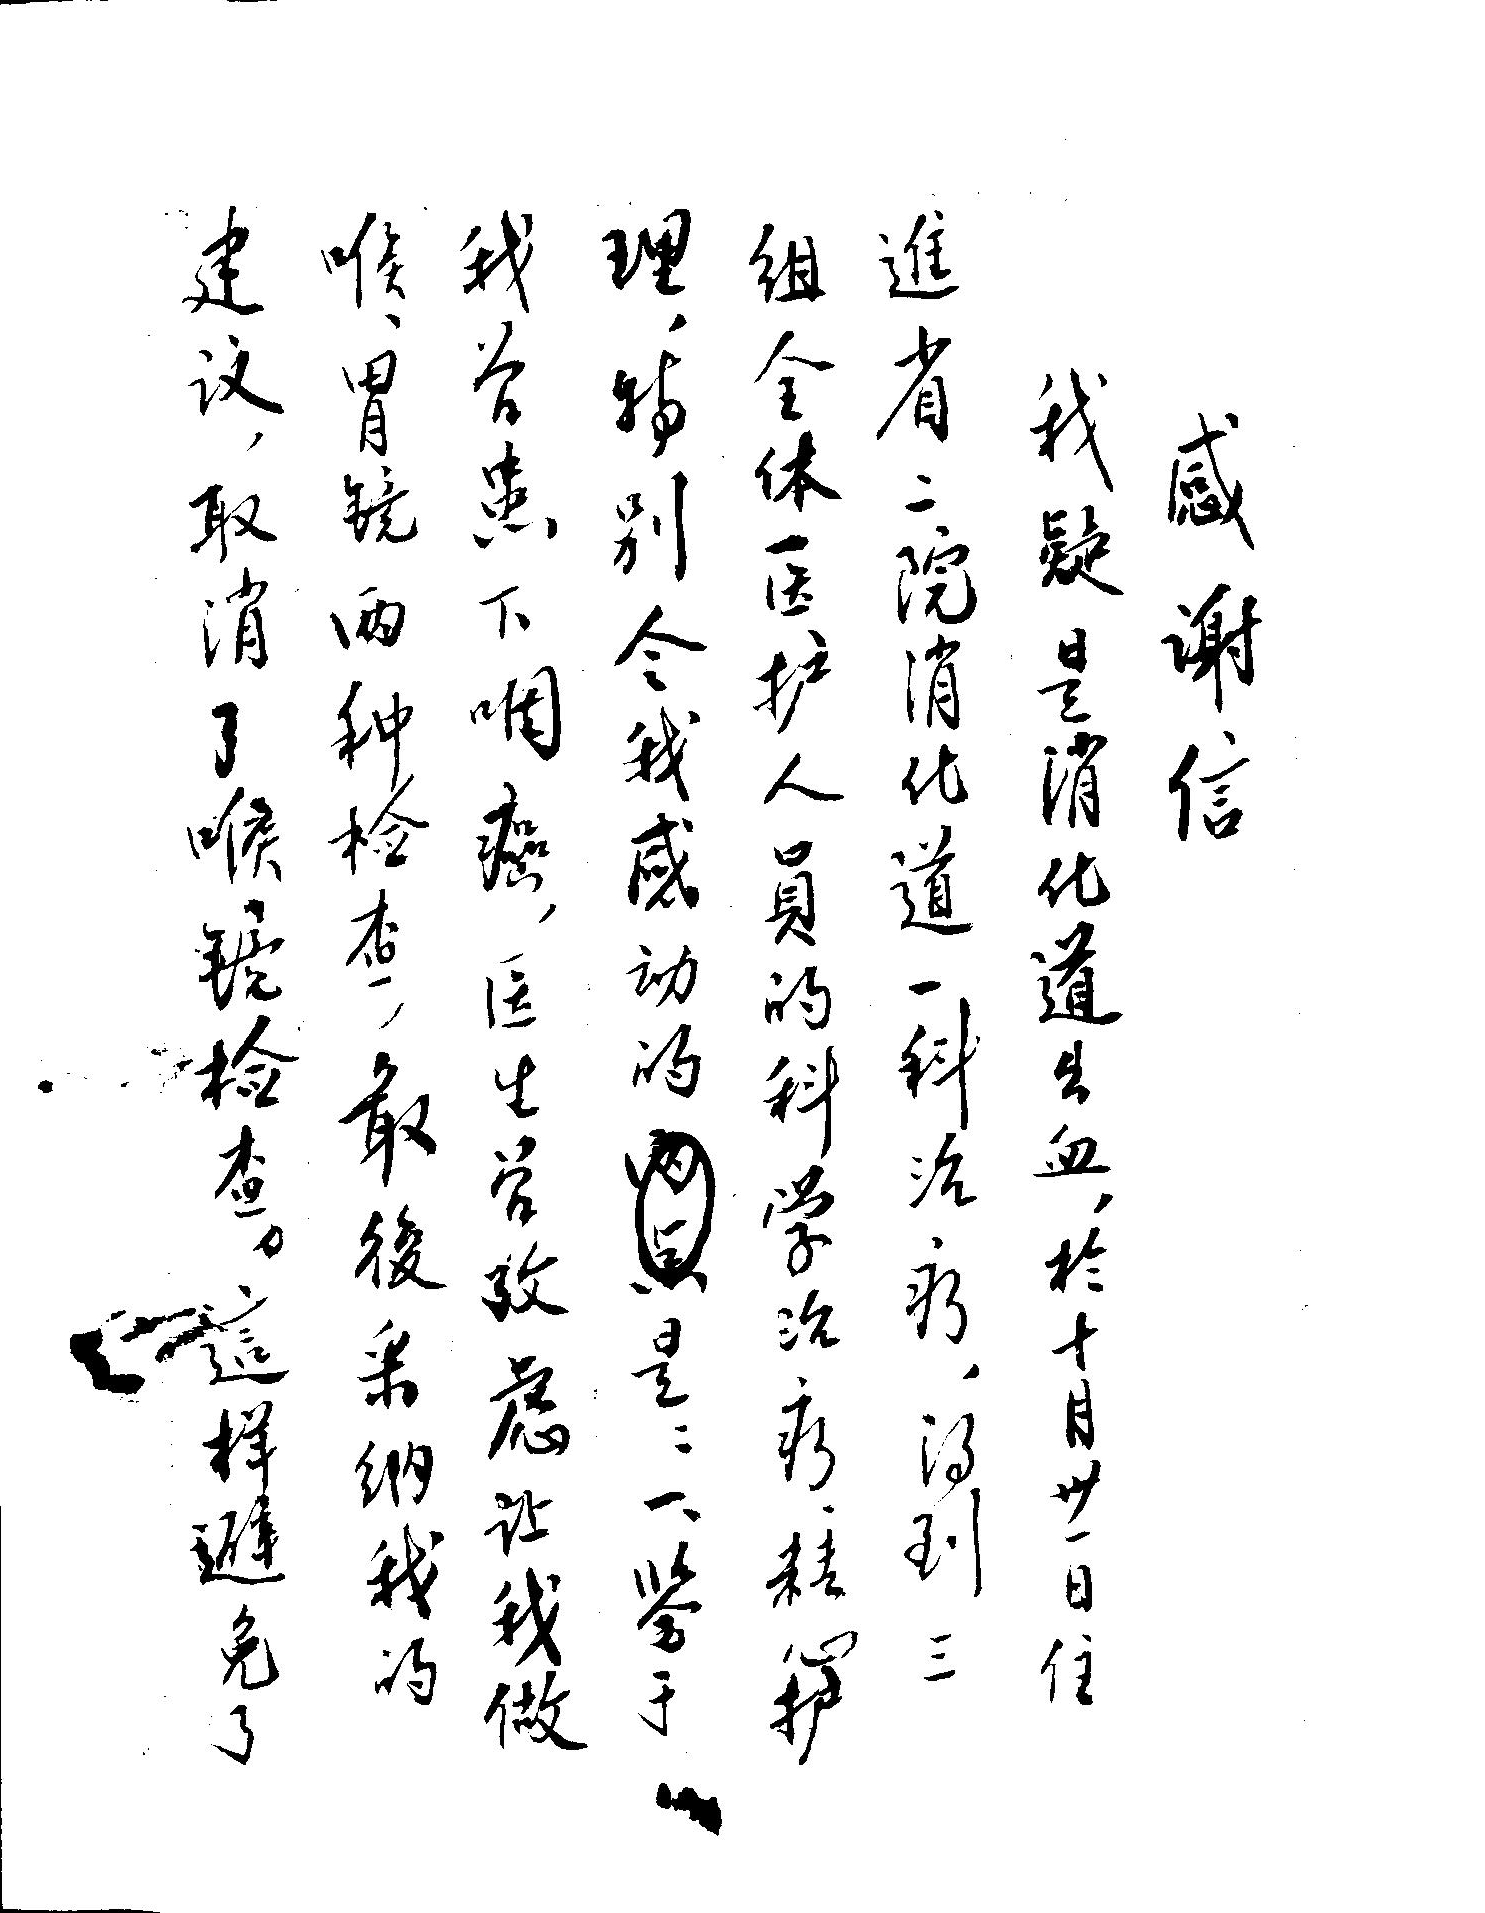 感谢信
我疑是消化道出血，於十月卅一日住
進省二院消化道一科治疗，得到三
组全体医护人員的科学治疗、精心护
理，特别令我感动的两点是：一、鉴于
我曾患下咽癌，医生曾考慮让我做
喉、胃镜两种检查，最後采纳我的
建议，取消了喉镜检查。這样避免了